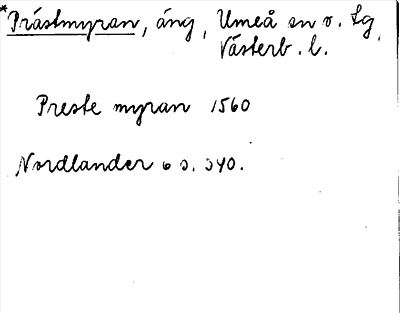 *Prästmyran, äng, Umeå sn o. Lg,
Västerb. l.
Preste myran 1560
Nordlander 6 s. 340.